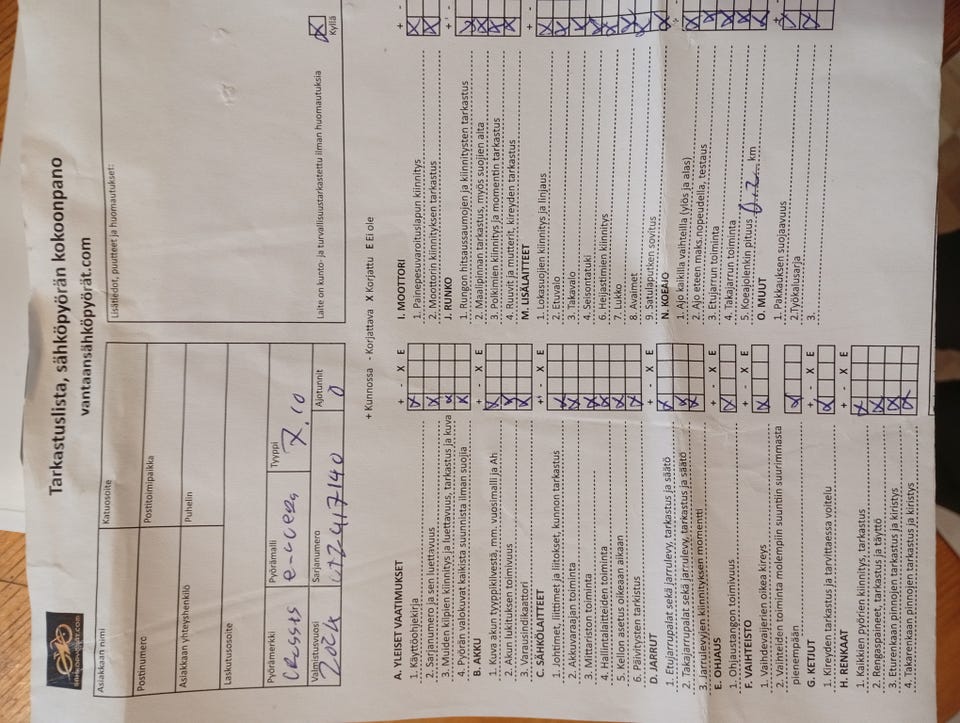 Tarkastuslista, sähköpyörän kokoonpano
vantaansähköpyörät.com
Asiakkaan nimi
Katuosoite
Postinumero
Postitoimipaikka
Asiakkaan yhteyshenkilö
Puhelin
Laskutusosoite
Pyörämerkki
Pyörämalli
Tyyppi
Crescent
7.10
Valmistusvuosi
Sarjanumero
Ajotunnit
2024
0
Lisätiedot, puutteet ja huomautukset:
Laite on kunto- ja turvallisuustarkastettu ilman huomautuksia
X
Kyllä
+ Kunnossa - Korjattava X Korjattu E Ei ole
A. YLEISET VAATIMUKSET
+ - X E
1. Käyttöohjekirja
X
2. Sarjanumero ja sen luettavuus
X
3. Muiden kilpien kiinnitys ja luettavuus, tarkastus ja kuva
X
4. Pyörän valokuvat kaikista suunnista ilman suojia
X
B. AKKU
+ - X E
1. Kuva akun tyyppikilvestä, mm. vuosimalli ja Ah
X
2. Akun lukituksen toimivuus
X
3. Varausindikaattori
X
C. SÄHKÖLAITTEET
+ - X E
1. Johtimet, liittimet ja liitokset, kunnon tarkastus
X
2. Akkuvaraajan toiminta
X
3. Mittariston toiminta
X
4. Hallintalaitteiden toiminta
X
5. Kellon asetus oikeaan aikaan
X
6. Päivitysten tarkistus
X
D. JARRUT
+ - X E
1. Etujarrupalat sekä jarrulevy, tarkastus ja säätö
X
2. Takajarrupalat sekä jarrulevy, tarkastus ja säätö
X
3. Jarrulevyjen kiinnityksen momentti
X
E. OHJAUS
+ - X E
1. Ohjaustangon toimivuus
X
F. VAIHTEISTO
+ - X E
1. Vaihdevaijerien oikea kireys
X
2. Vaihteiden toiminta molempiin suuntiin suurimmasta
pienempään
X
G. KETJUT
+ - X E
1. Kireyden tarkastus ja tarvittaessa voitelu
X
H. RENKAAT
+ - X E
1. Kaikkien pyörien kiinnitys, tarkastus
X
2. Rengaspaineet, tarkastus ja täyttö
X
3. Eturenkaan pinnojen tarkastus ja kiristys
X
4. Takarenkaan pinnojen tarkastus ja kiristys
X
I. MOOTTORI
+ -
1. Painepesuvaroituslapun kiinnitys
X
2. Moottorin kiinnityksen tarkastus
X
J. RUNKO
+ -
1. Rungon hitsaussaumojen ja kiinnitysten tarkastus
X
2. Maalipinnan tarkastus, myös suojien alta
X
3. Polkimien kiinnitys ja momentin tarkastus
X
4. Ruuvit ja mutterit, kireyden tarkastus
X
M. LISÄLAITTEET
+ -
1. Lokasuojien kiinnitys ja linjaus
X
2. Etuvalo
X
3. Takavalo
X
4. Seisontatuki
X
6. Heijastimien kiinnitys
X
7. Lukko
X
8. Avaimet
X
9. Satulaputken sovitus
X
N. KOEAJO
1. Ajo kaikilla vaihteilla (ylös ja alas)
X
2. Ajo eteen maks.nopeudella, testaus
X
3. Etujarrun toiminta
X
4. Takajarrun toiminta
X
5. Koeajolenkin pituus 0.2 km
X
O. MUUT
+ -
1. Pakkauksen suojaavuus
X
2.Työkalusarja
X
3.